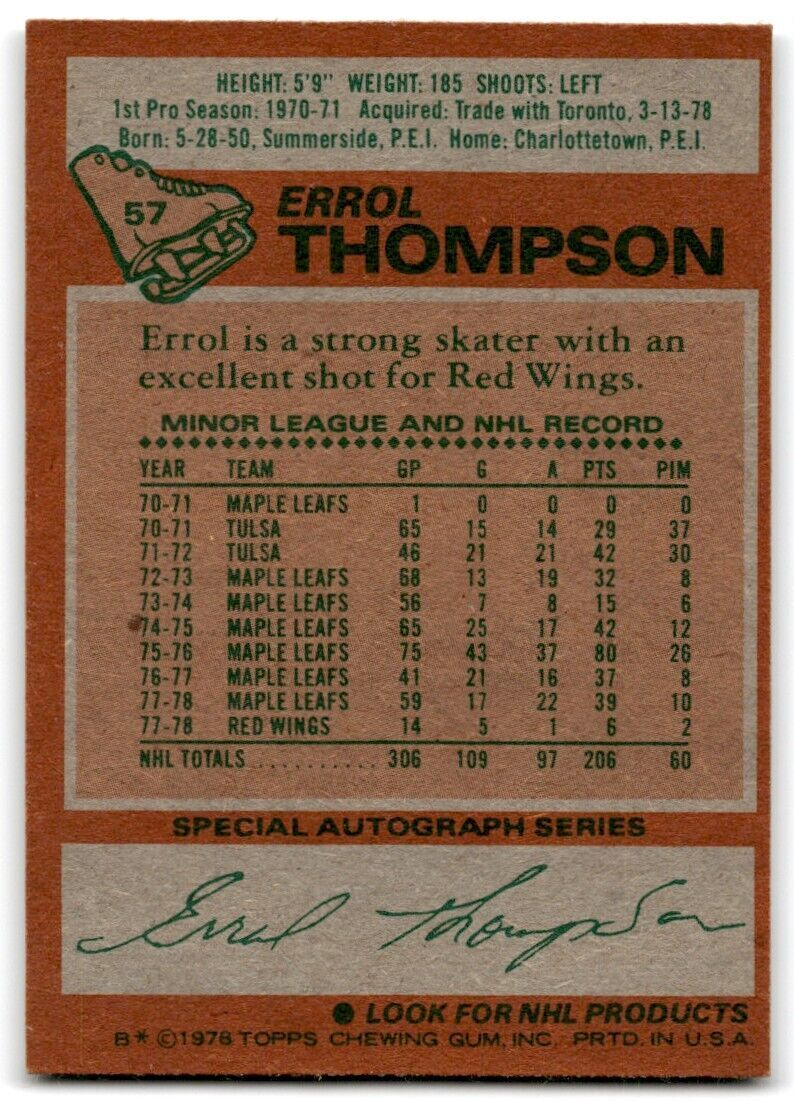 HEIGHT: 5'9" WEIGHT: 185 SHOOTS: LEFT
1st Pro Season: 1970-71 Acquired: Trade with Toronto, 3-13-78
Born: 5-28-50, Summerside, P.E.I. Home: Charlottetown, P.E.I.
57
ERROL
THOMPSON
Errol is a strong skater with an
excellent shot for Red Wings.
MINOR LEAGUE AND NHL RECORD
YEAR TEAM GP G A PTS PIM
70-71 MAPLE LEAFS 1 0 0 0 0
70-71 TULSA 65 15 14 29 37
71-72 TULSA 46 21 21 42 30
72-73 MAPLE LEAFS 68 13 19 32 8
73-74 MAPLE LEAFS 56 7 8 15 6
74-75 MAPLE LEAFS 65 25 17 42 12
75-76 MAPLE LEAFS 75 43 37 80 26
76-77 MAPLE LEAFS 41 21 16 37 8
77-78 MAPLE LEAFS 59 17 22 39 10
77-78 RED WINGS 14 5 1 6 2
NHL TOTALS .......... 306 109 97 206 60
SPECIAL AUTOGRAPH SERIES
Errol Thompson
● LOOK FOR NHL PRODUCTS
B* ©1978 TOPPS CHEWING GUM, INC. PRTD. IN U.S.A.